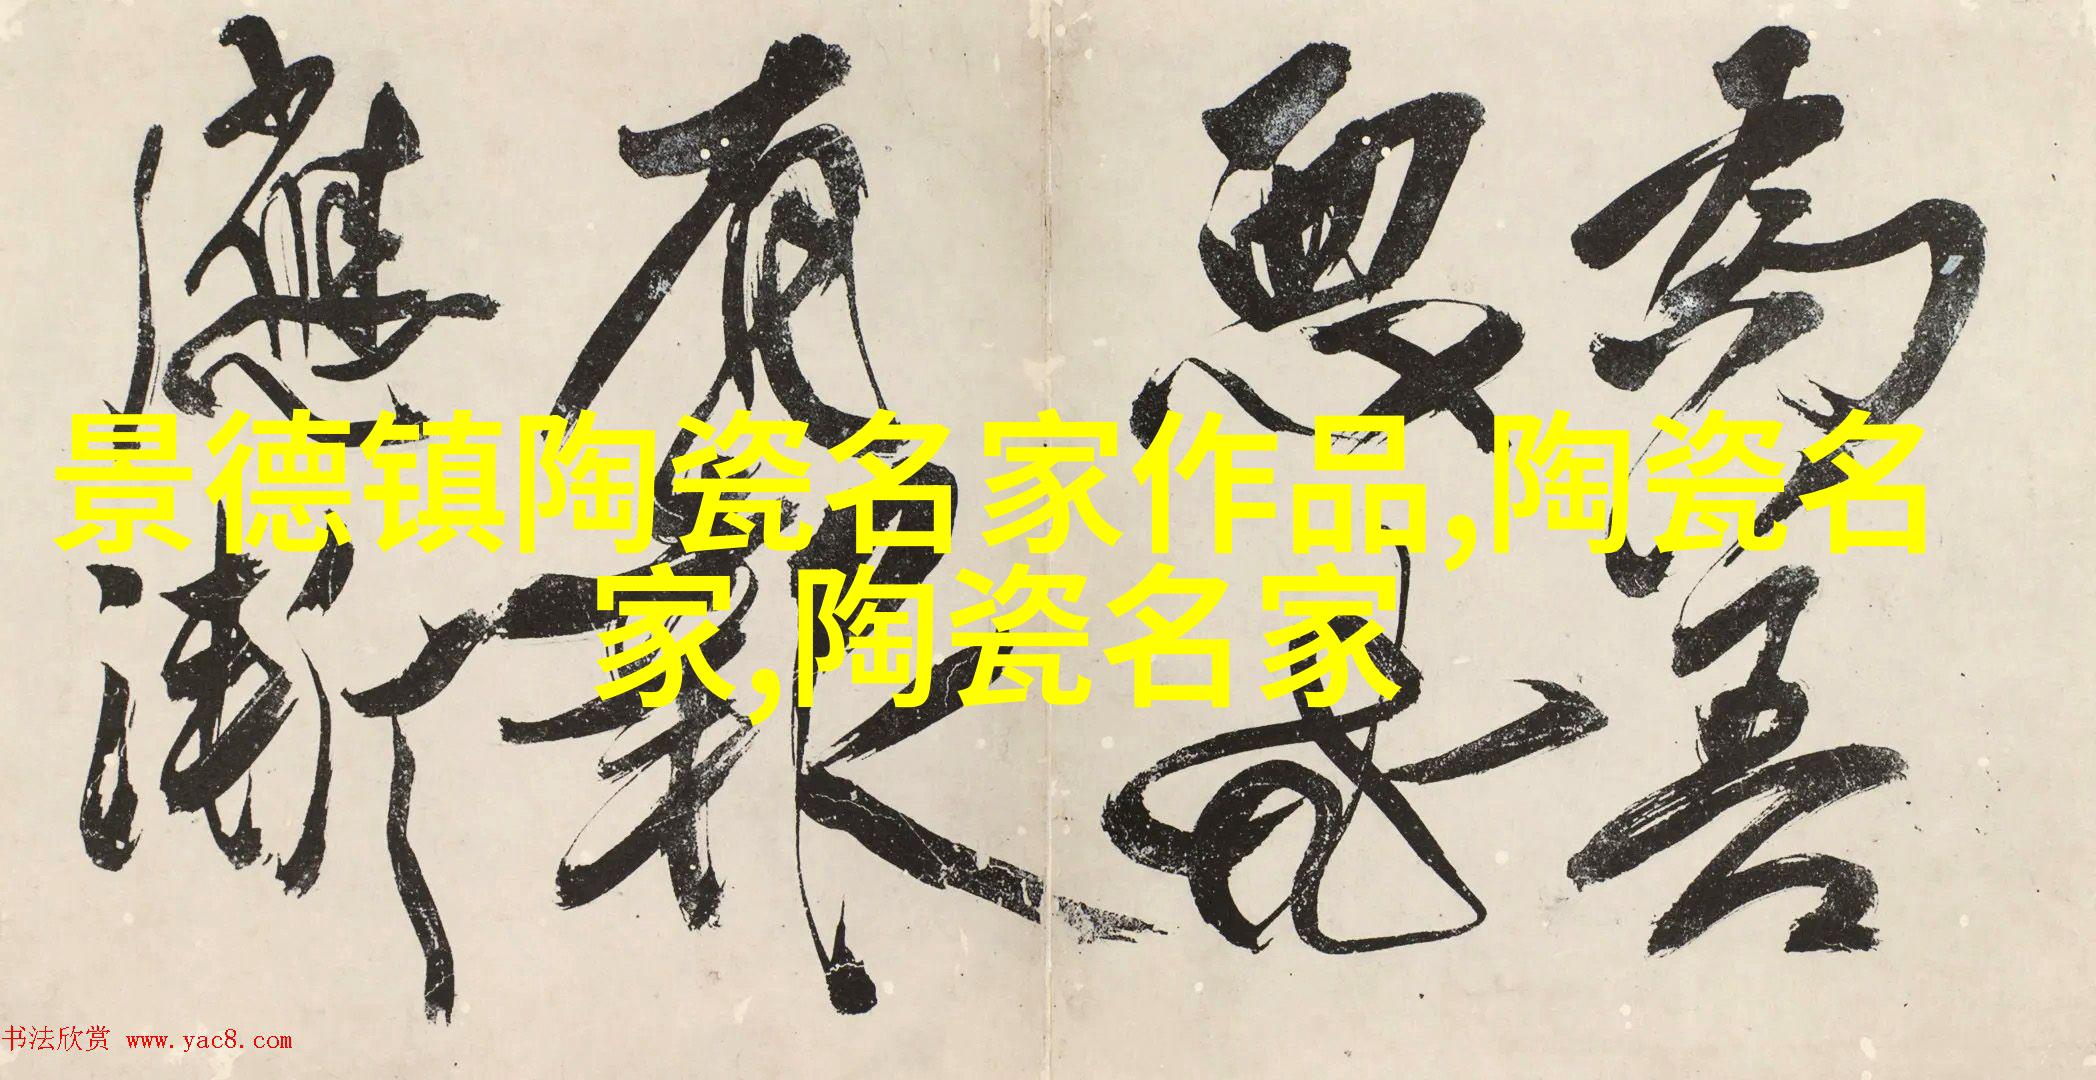 為善
有報
應漸
景德镇陶瓷名家作品,陶瓷名
家,陶瓷名家
书法欣赏 www.yac8.com